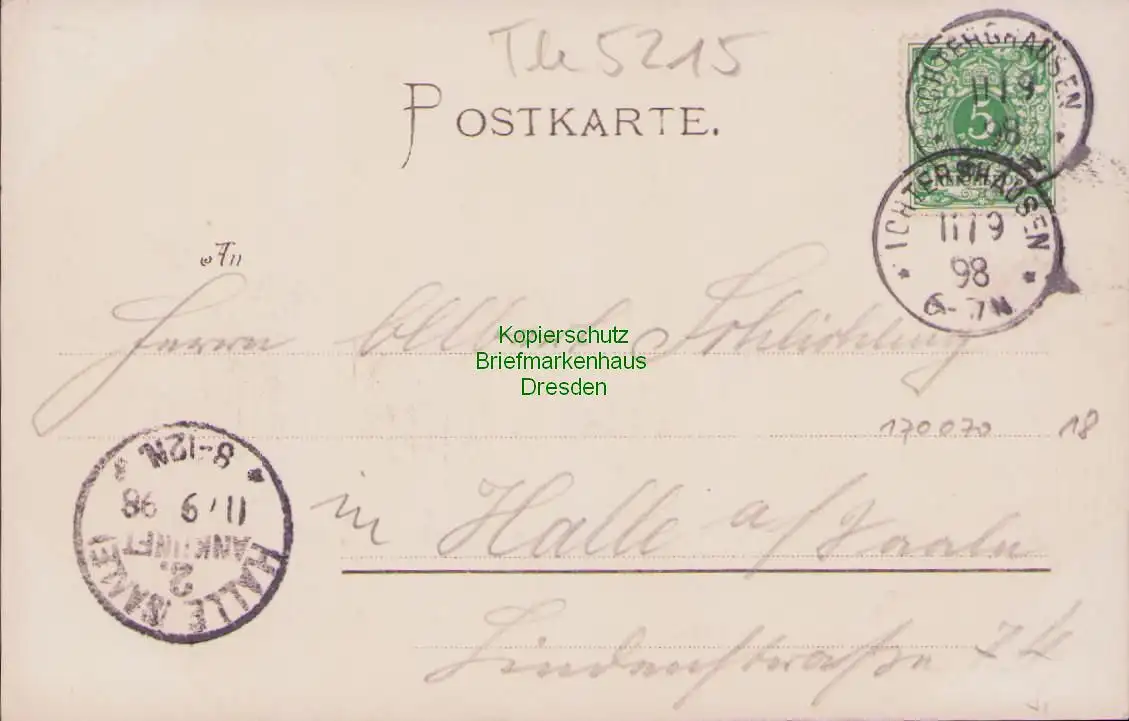 Th 5215
POSTKARTE.
ICHTERSHAUSEN
11/9
98
5
ICHTERSHAUSEN
11/9
98
6-7N
An
Herrn
Kopierschutz
Briefmarkenhaus
Dresden
170070 18
HALLE (SAALE)
2.
ANKUNFT
11/9 98
8-12N.
in Halle a/Saale
Lindenstraße